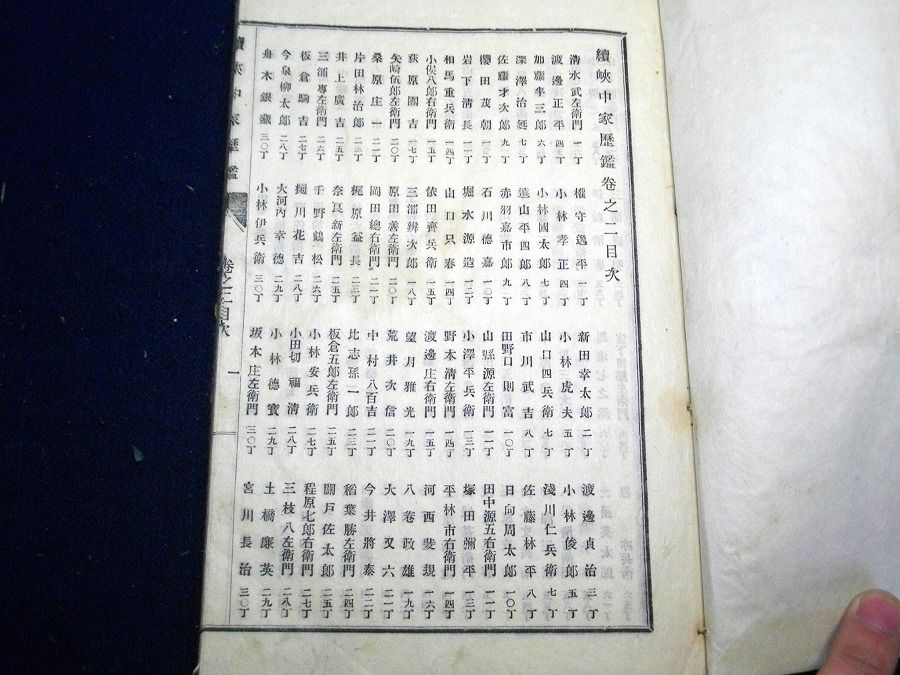 續峽中家歷鑑卷之二目次
清水武左衛門 一丁
權守逸平 一丁
新田幸太郎 二丁
渡邊貞治 三丁
渡邊正平 四丁
小林孝正 四丁
小林虎夫 五丁
小林俊郎 五丁
加藤半三郎 六丁
小林國太郎 七丁
山口四兵衛 七丁
淺川仁兵衛 七丁
深澤八治 七丁
遠山平四郎 八丁
市川武吉 八丁
佐藤林平 八丁
佐藤才次郎 九丁
赤羽嘉市郎 九丁
田野口則富 一〇丁
日向周太郎 一〇丁
櫻田茂朝 一〇丁
石川德嘉 一〇丁
山縣源左衛門 一一丁
田中源五右衛門 一一丁
岩下清長 一一丁
堀水源造 一二丁
小澤平兵衛 一三丁
塚田彌平 一三丁
相馬重兵衛 一四丁
山口只春 一四丁
野本清左衛門 一四丁
平林市右衛門 一四丁
小俣八郎右衛門 一五丁
依田齊兵衛 一五丁
渡邊庄右衛門 一五丁
河西斐規 一六丁
荻原園吉 一七丁
三浦辨次郎 一八丁
望月雅光 一九丁
八卷政雄 一九丁
矢崎伍郎左衛門 二〇丁
原田善左衛門 二〇丁
荒井次信 二〇丁
大澤又六 二一丁
桑原庄一 二一丁
岡田總右衛門 二一丁
中村八百吉 二二丁
今井將泰 二二丁
片田林治郎 二三丁
梶原益長 二三丁
比志孫一郎 二三丁
稻葉勝左衛門 二四丁
井上廣吉 二五丁
奈良新左衛門 二五丁
板倉五郎左衛門 二五丁
關戸佐太郎 二五丁
三浦專左衛門 二六丁
千野鶴松 二六丁
小林安兵衛 二七丁
程原七郎右衛門 二七丁
板倉駒吉 二七丁
樋川花吉 二八丁
小田切福清 二八丁
三枝八左衛門 二八丁
今泉柳太郎 二八丁
大河內幸德 二九丁
小林德寶 二九丁
土橋廉英 二九丁
舟木銀藏 三〇丁
小林伊兵衛 三〇丁
坂本庄左衛門 三〇丁
宮川長治 三〇丁
續峽中家歷鑑
卷之二目次
一